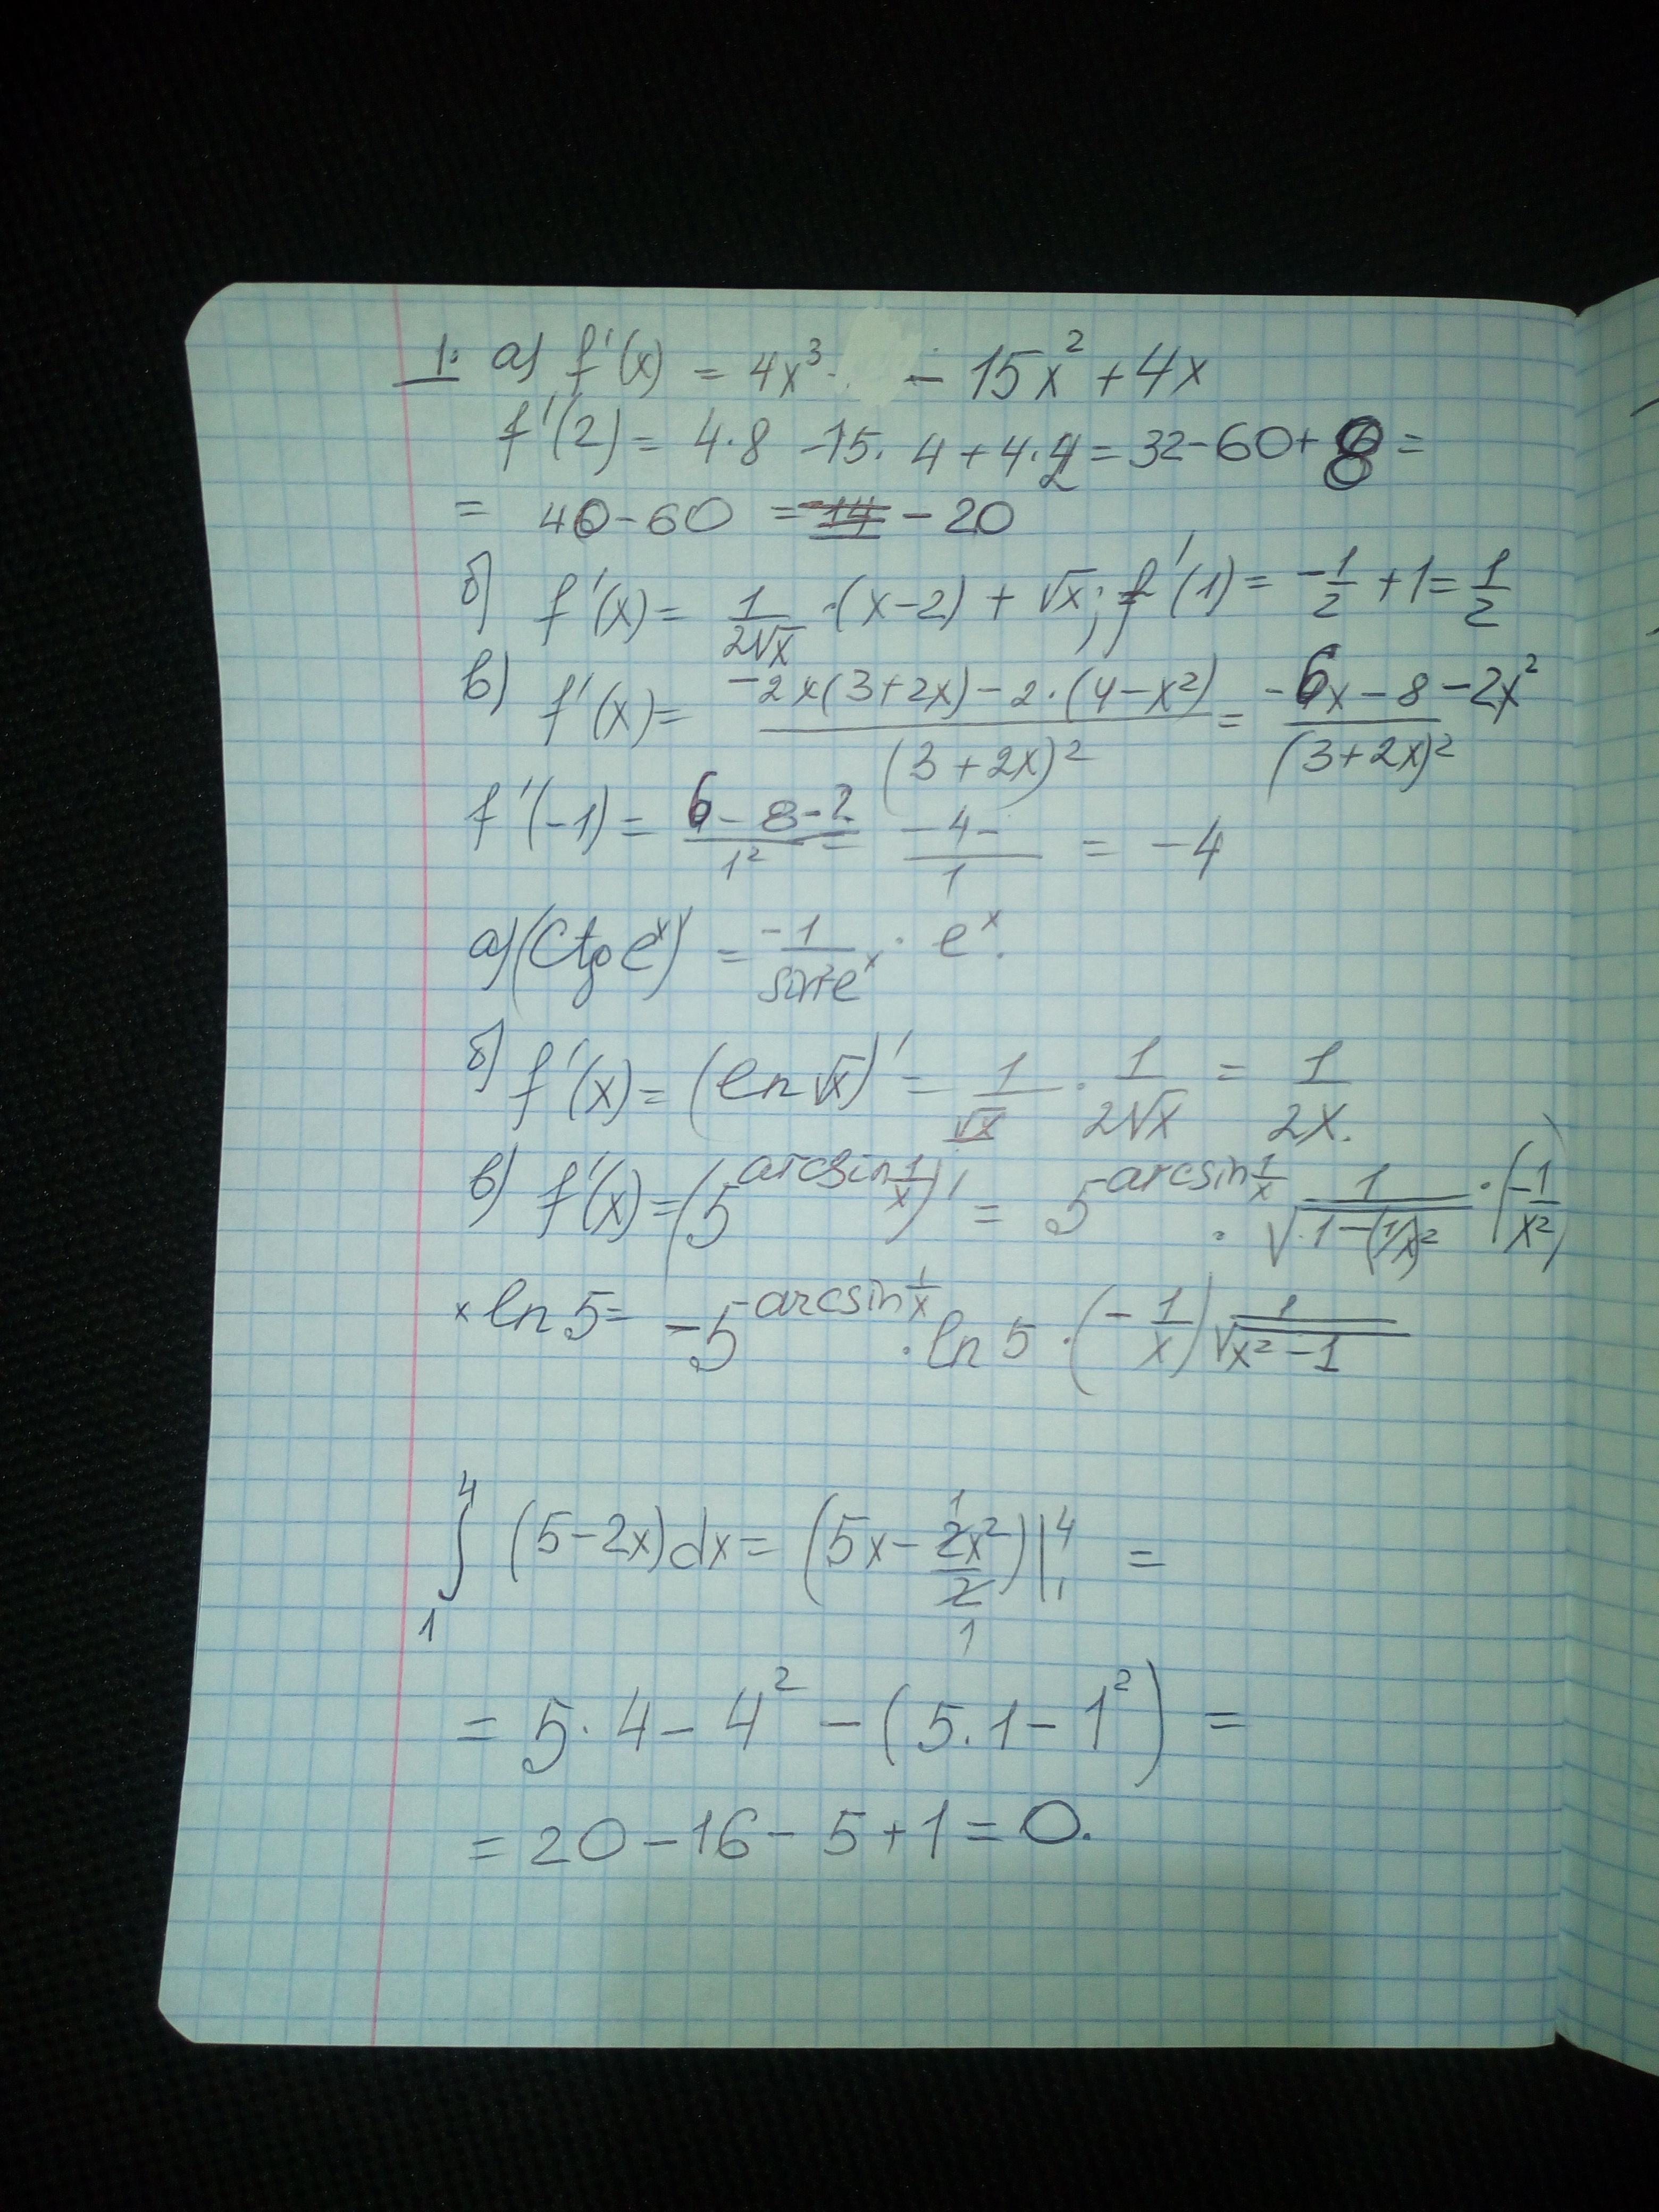 1. а) f'(x) = 4x³ - - 15x² + 4x
f'(2) = 4·8 - 15·4 + 4·2 = 32 - 60 + 8 =
= 40 - 60 = -14 - 20
б) f'(x) = 1/(2√x) · (x-2) + √x; f'(1) = -1/2 + 1 = 1/2
в) f'(x) = (-2x(3+2x) - 2·(4-x²))/(3+2x)² = (-6x - 8 - 2x²)/(3+2x)²
f'(-1) = (6 - 8 - 2)/1² = (-4-)/1 = -4
а) (Ctg eˣ)' = -1/(sin²eˣ) · eˣ.
б) f'(x) = (ln √x)' = 1/√x · 1/(2√x) = 1/(2x).
в) f'(x) = (5^(arcsin 1/x))' = 5^(arcsin 1/x) · 1/√(1-(1/x)²) · (-1/x²)
× ln 5 = -5^(arcsin 1/x) · ln 5 · (-1/x) 1/√(x²-1)
∫₁⁴ (5-2x)dx = (5x - 2x²/2)|₁⁴ =
= 5·4 - 4² - (5·1 - 1²) =
= 20 - 16 - 5 + 1 = 0.